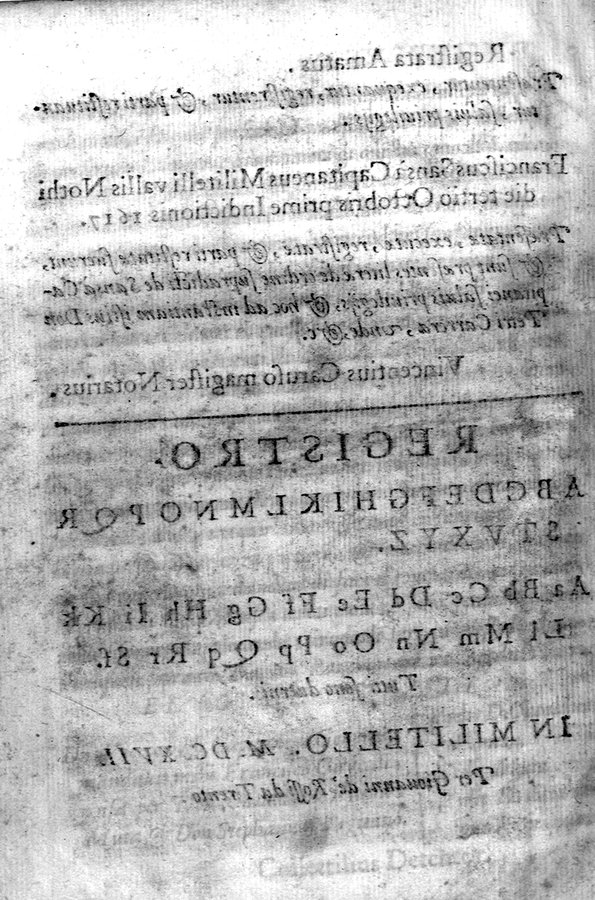 Regiſtrata Amatus.
Præſentetur, exequatur, regiſtrentur, & parti reſtituan-
tur, ſaluis priuilegijs.
Franciſcus Sansà Capitaneus Militelli vallis Nothi
die tertio Octobris prime Indictionis 1617.
Præſentate, execute, regiſtrate, & parti reſtitute fuerunt,
& ſunt preſentes literæ de ordine ſupradicti de Sansà Ca-
pitanei; ſaluis priuilegijs, & hoc ad inſtantiam iſtius Don
Petri Carrera, vnde, &c.
Vincentius Caruſo magiſter Notarius.
REGISTRO.
A B C D E F G H I K L M N O P Q R
S T V X Y Z.
Aa Bb Cc Dd Ee Ff Gg Hh Ii Kk
Ll Mm Nn Oo Pp Qq Rr Sſ.
Tutti ſono duerni.
IN MILITELLO. M. DC. XVII.
Per Giouanni de' Roſſi da Trento